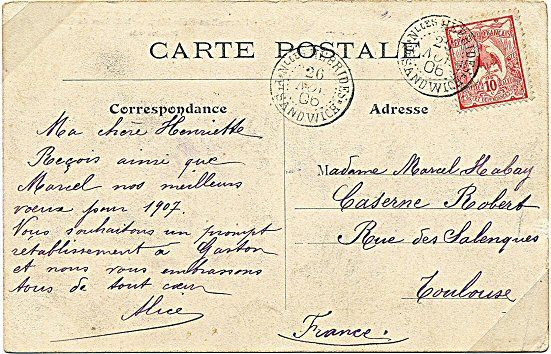 CARTE POSTALE
Correspondance
Ma chère Henriette
Reçois ainsi que
Marcel nos meilleurs
voeux pour 1907.
Vous souhaitons un prompt
retablissement à Gaston
et nous vous embrassons
tous de tout cœur
Alice
Adresse
Madame Marcel Habay
Caserne Robert
Rue des Salenques
Toulouse
France.
NLLES HEBRIDES
26
06
SANDWICH
NLLES HEBRIDES
06
SANDWICH
10